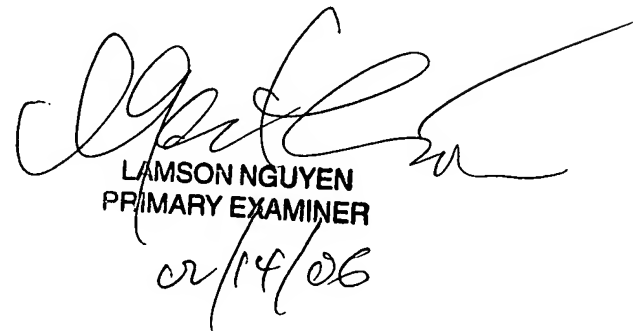 LAMSON NGUYEN
PRIMARY EXAMINER
02/14/06